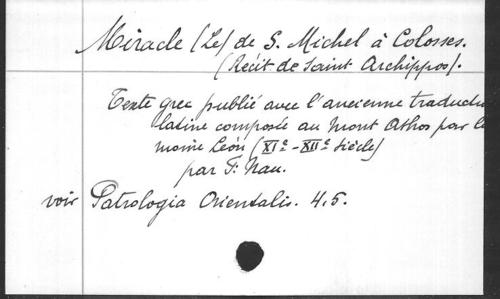 Miracle (Le) de S. Michel à Colosses.
(Récit de Saint Archippos).
Texte grec publié avec l'ancienne traduc
latine composée au Mont Athos par l
moine Léon (XIe-XIIe siècle)
par F. Nau.
voir Patrologia Orientalis. 4.5.